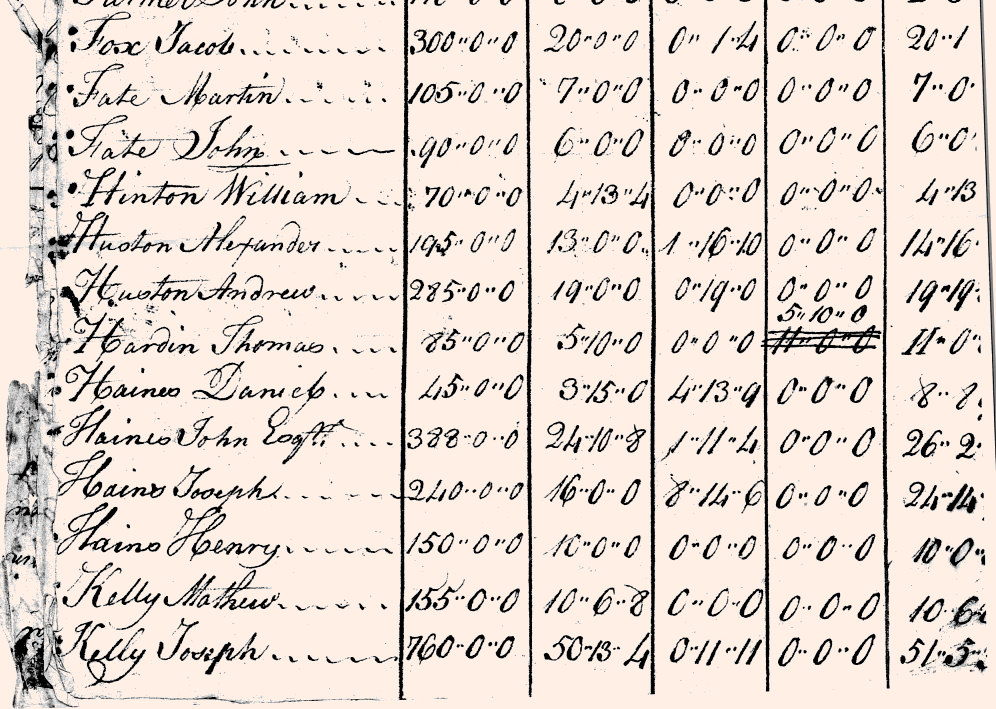 Fox Jacob 300"0"0 20"0"0 0"1"4 0"0"0 20"1
Fate Martin 105"0"0 7"0"0 0"0"0 0"0"0 7"0"
Fate John 90"0"0 6"0"0 0"0"0 0"0"0 6"0"
Hinton William 70"0"0 4"13"4 0"0"0 0"0"0 4"13
Huston Alexander 195"0"0 13"0"0 1"16"10 0"0"0 14"16"
Huston Andrew 285"0"0 19"0"0 0"19"0 0"0"0 19"19"
5"10"0
Hardin Thomas 85"0"0 5"10"0 0"0"0 11"0"0 11"0"
Haines Daniel 45"0"0 3"15"0 4"13"9 0"0"0 8"8"
Haines John Esqr. 388"0"0 24"10"8 1"11"4 0"0"0 26"2"
Hains Joseph 240"0"0 16"0"0 8"14"6 0"0"0 24"14"
Hains Henry 150"0"0 10"0"0 0"0"0 0"0"0 10"0"
Kelly Mathew 155"0"0 10"6"8 0"0"0 0"0"0 10"6"
Kelly Joseph 760"0"0 50"13"4 0"11"11 0"0"0 51"5"